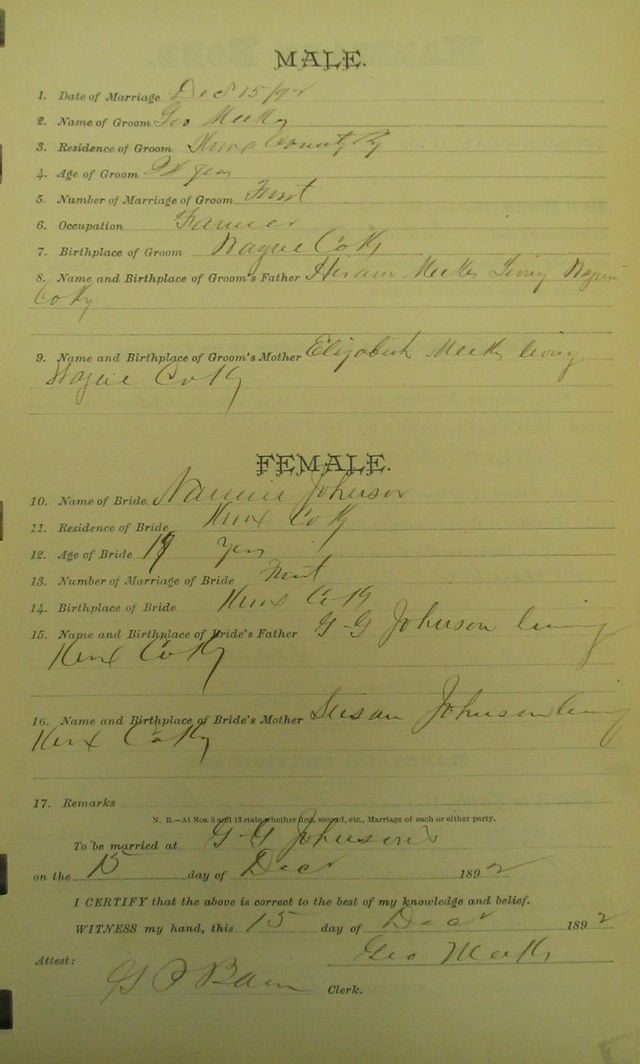 MALE.
1. Date of Marriage Dec 15/92
2. Name of Groom Geo Meeks
3. Residence of Groom Knox County Ky
4. Age of Groom yrs
5. Number of Marriage of Groom First
6. Occupation Farmer
7. Birthplace of Groom Wayne Co Ky
8. Name and Birthplace of Groom's Father Hiram Meeks living Wayne
Co Ky
9. Name and Birthplace of Groom's Mother Elizabeth Meeks living
Wayne Co Ky
FEMALE.
10. Name of Bride Nannie Johnson
11. Residence of Bride Knox Co Ky
12. Age of Bride 19 yrs
13. Number of Marriage of Bride First
14. Birthplace of Bride Knox Co Ky
15. Name and Birthplace of Bride's Father G G Johnson living
Knox Co Ky
16. Name and Birthplace of Bride's Mother Susan Johnson living
Knox Co Ky
17. Remarks
N. B.—At Nos. 5 and 13 state whether first, second, etc., Marriage of each or either party.
To be married at G G Johnson's
on the 15 day of Decr 1892
I CERTIFY that the above is correct to the best of my knowledge and belief.
WITNESS my hand, this 15 day of Decr 1892
Geo Meeks
Attest:
Clerk.